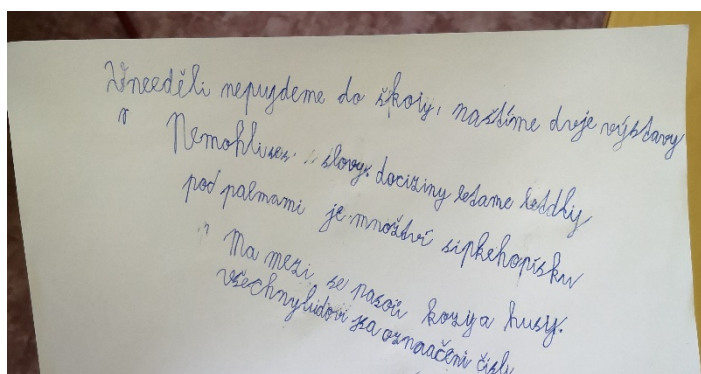 Vneeděli nepujdeme do školy, naštíme dvje výstavy
Nemohli slovy. dociziny letame letdly
pod palmami je množtví sipkehopísku
Na mezi se pasou kozy a husy.
všechnylidovi za označeni čísly